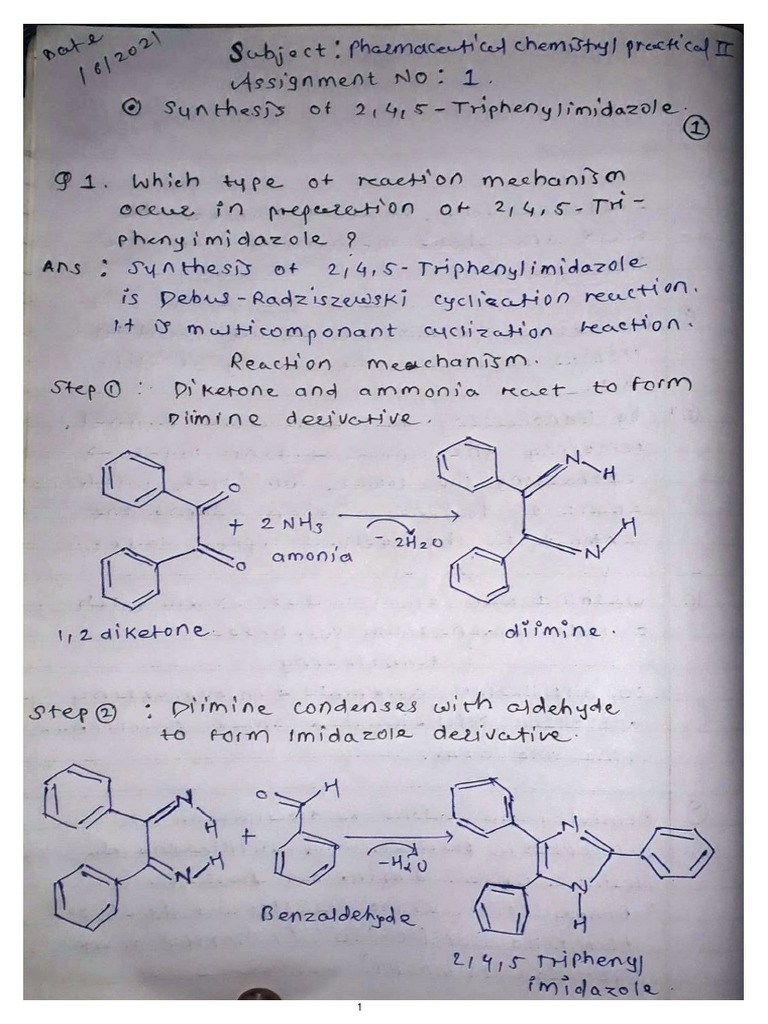 Date
1/6/2021
Subject: Pharmaceutical chemistry practical II
Assignment No: 1.
Synthesis of 2,4,5-Triphenylimidazole.
1
Q1. Which type of reaction mechanism
occur in preparation of 2,4,5-Tri-
phenyimidazole ?
Ans : Synthesis of 2,4,5-Triphenylimidazole
is Debus-Radziszewski cyclization reaction.
It is multicomponant cyclization reaction.
Reaction meachanism.
Step ① : Diketone and ammonia react to form
Diimine derivative.
O
O
+ 2 NH3
amonia
- 2H2O
N H
H
N
1,2 diketone.
diimine.
Step ② : Diimine condenses with aldehyde
to form imidazole derivative.
N
H
N H
+
O H
-H2O
N
N
H
Benzaldehyde
2,4,5 Triphenyl
imidazole.
1